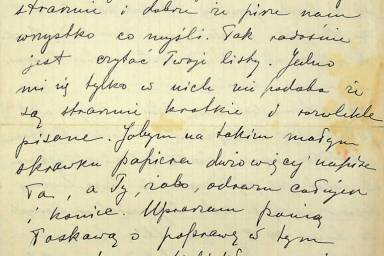 strasznie i dobrze że pisze nam
wszystko co myśli. Tak radośnie
jest czytać Twoje listy. Jedno
mi się tylko w nich nie podoba że
są strasznie krótkie i rozwlekle
pisane. Jabym na takim małym
skrawku papieru dużo więcej napisa
ła, a Ty, zaraz całuję
i koniec. Upraszam panią
łaskawą o poprawę w tym